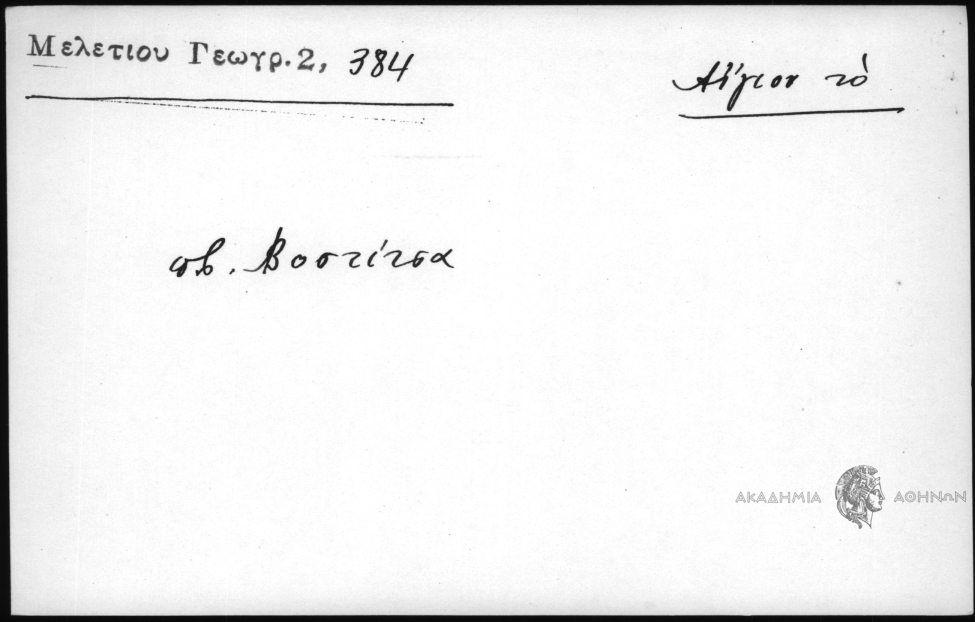 Μελετιου Γεωγρ. 2, 384
Αἴγιον τὸ
πβ. Βοστίτσα
ΑΚΑΔΗΜΙΑ ΑΘΗΝΩΝ